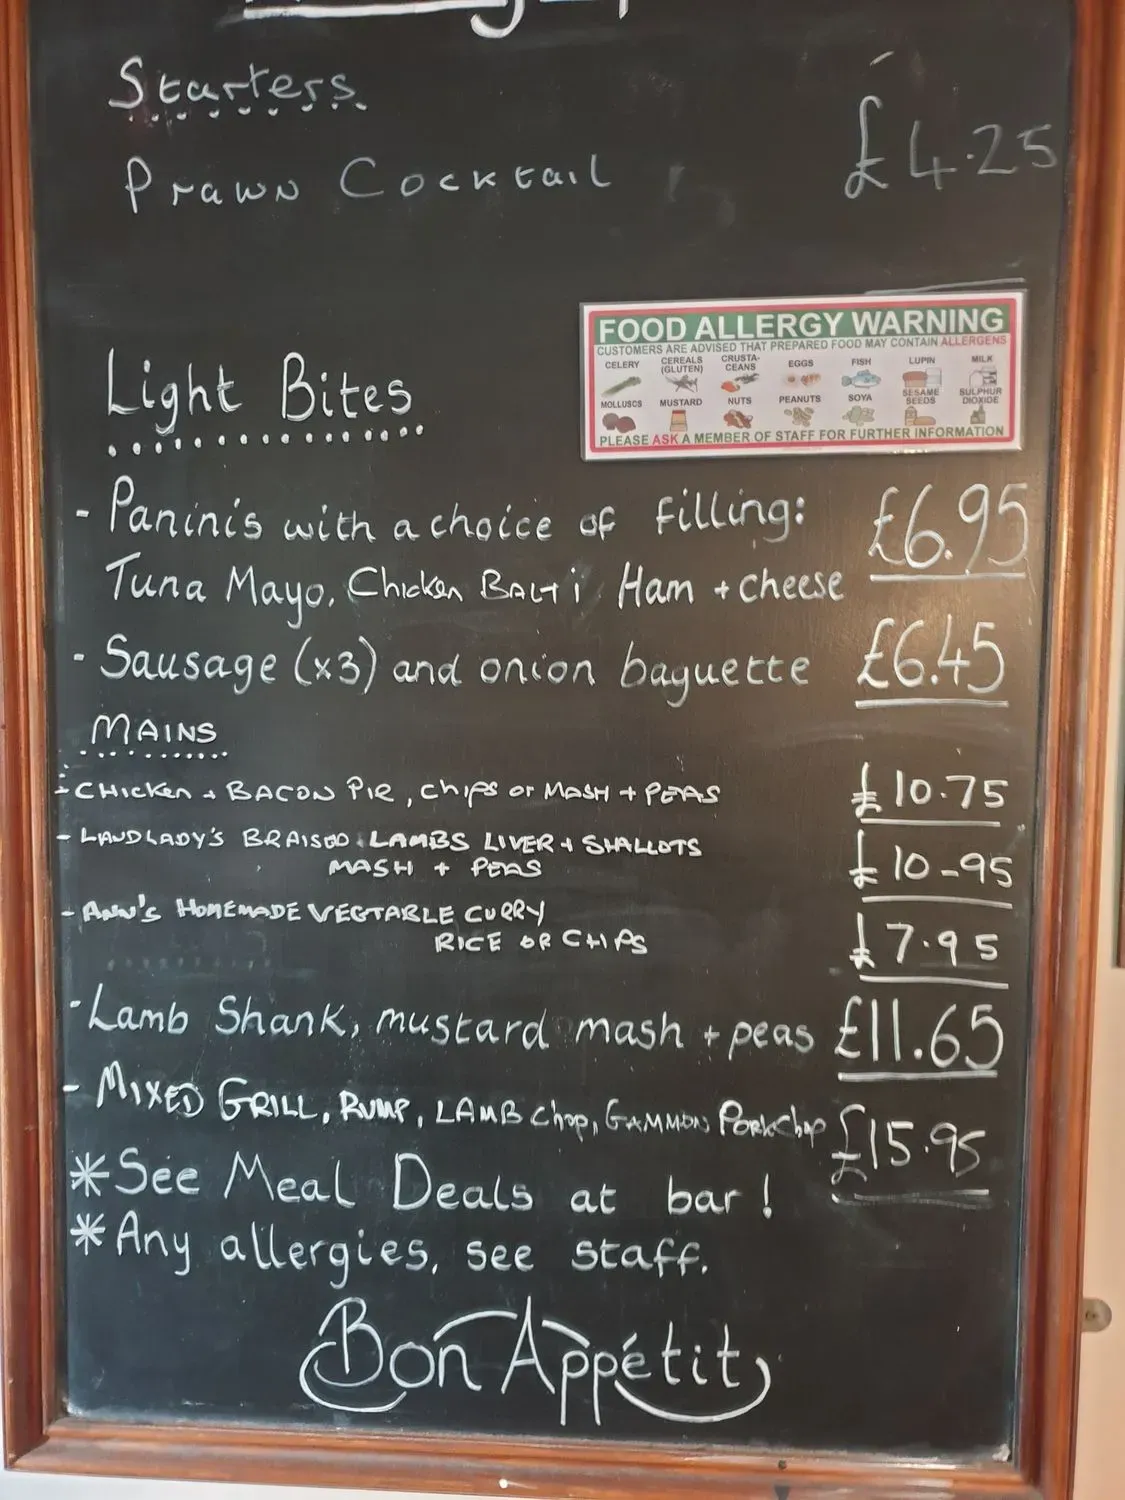 Starters
Prawn Cocktail £4.25
FOOD ALLERGY WARNING
CUSTOMERS ARE ADVISED THAT PREPARED FOOD MAY CONTAIN ALLERGENS
CELERY CEREALS (GLUTEN) CRUSTA-CEANS EGGS FISH LUPIN MILK
MOLLUSCS MUSTARD NUTS PEANUTS SOYA SESAME SEEDS SULPHUR DIOXIDE
PLEASE ASK A MEMBER OF STAFF FOR FURTHER INFORMATION
Light Bites
- Paninis with a choice of filling: £6.95
Tuna Mayo, Chicken BALTi Ham + cheese
- Sausage (x3) and onion baguette £6.45
MAINS
- CHicken + BACON PIE, chips or MASH + PEAS £10.75
- LANDLADY'S BRAISED LAMBS LIVER + SHALLOTS £10-95
MASH + PEAS
- ANN'S HOMEMADE VEGTABLE CURRY
RICE OR CHIPS £7.95
- Lamb Shank, mustard mash + peas £11.65
- MIXED GRILL, RUMP, LAMB Chop, GAMMON PORK Chop £15.95
* See Meal Deals at bar!
* Any allergies, see staff.
Bon Appétit